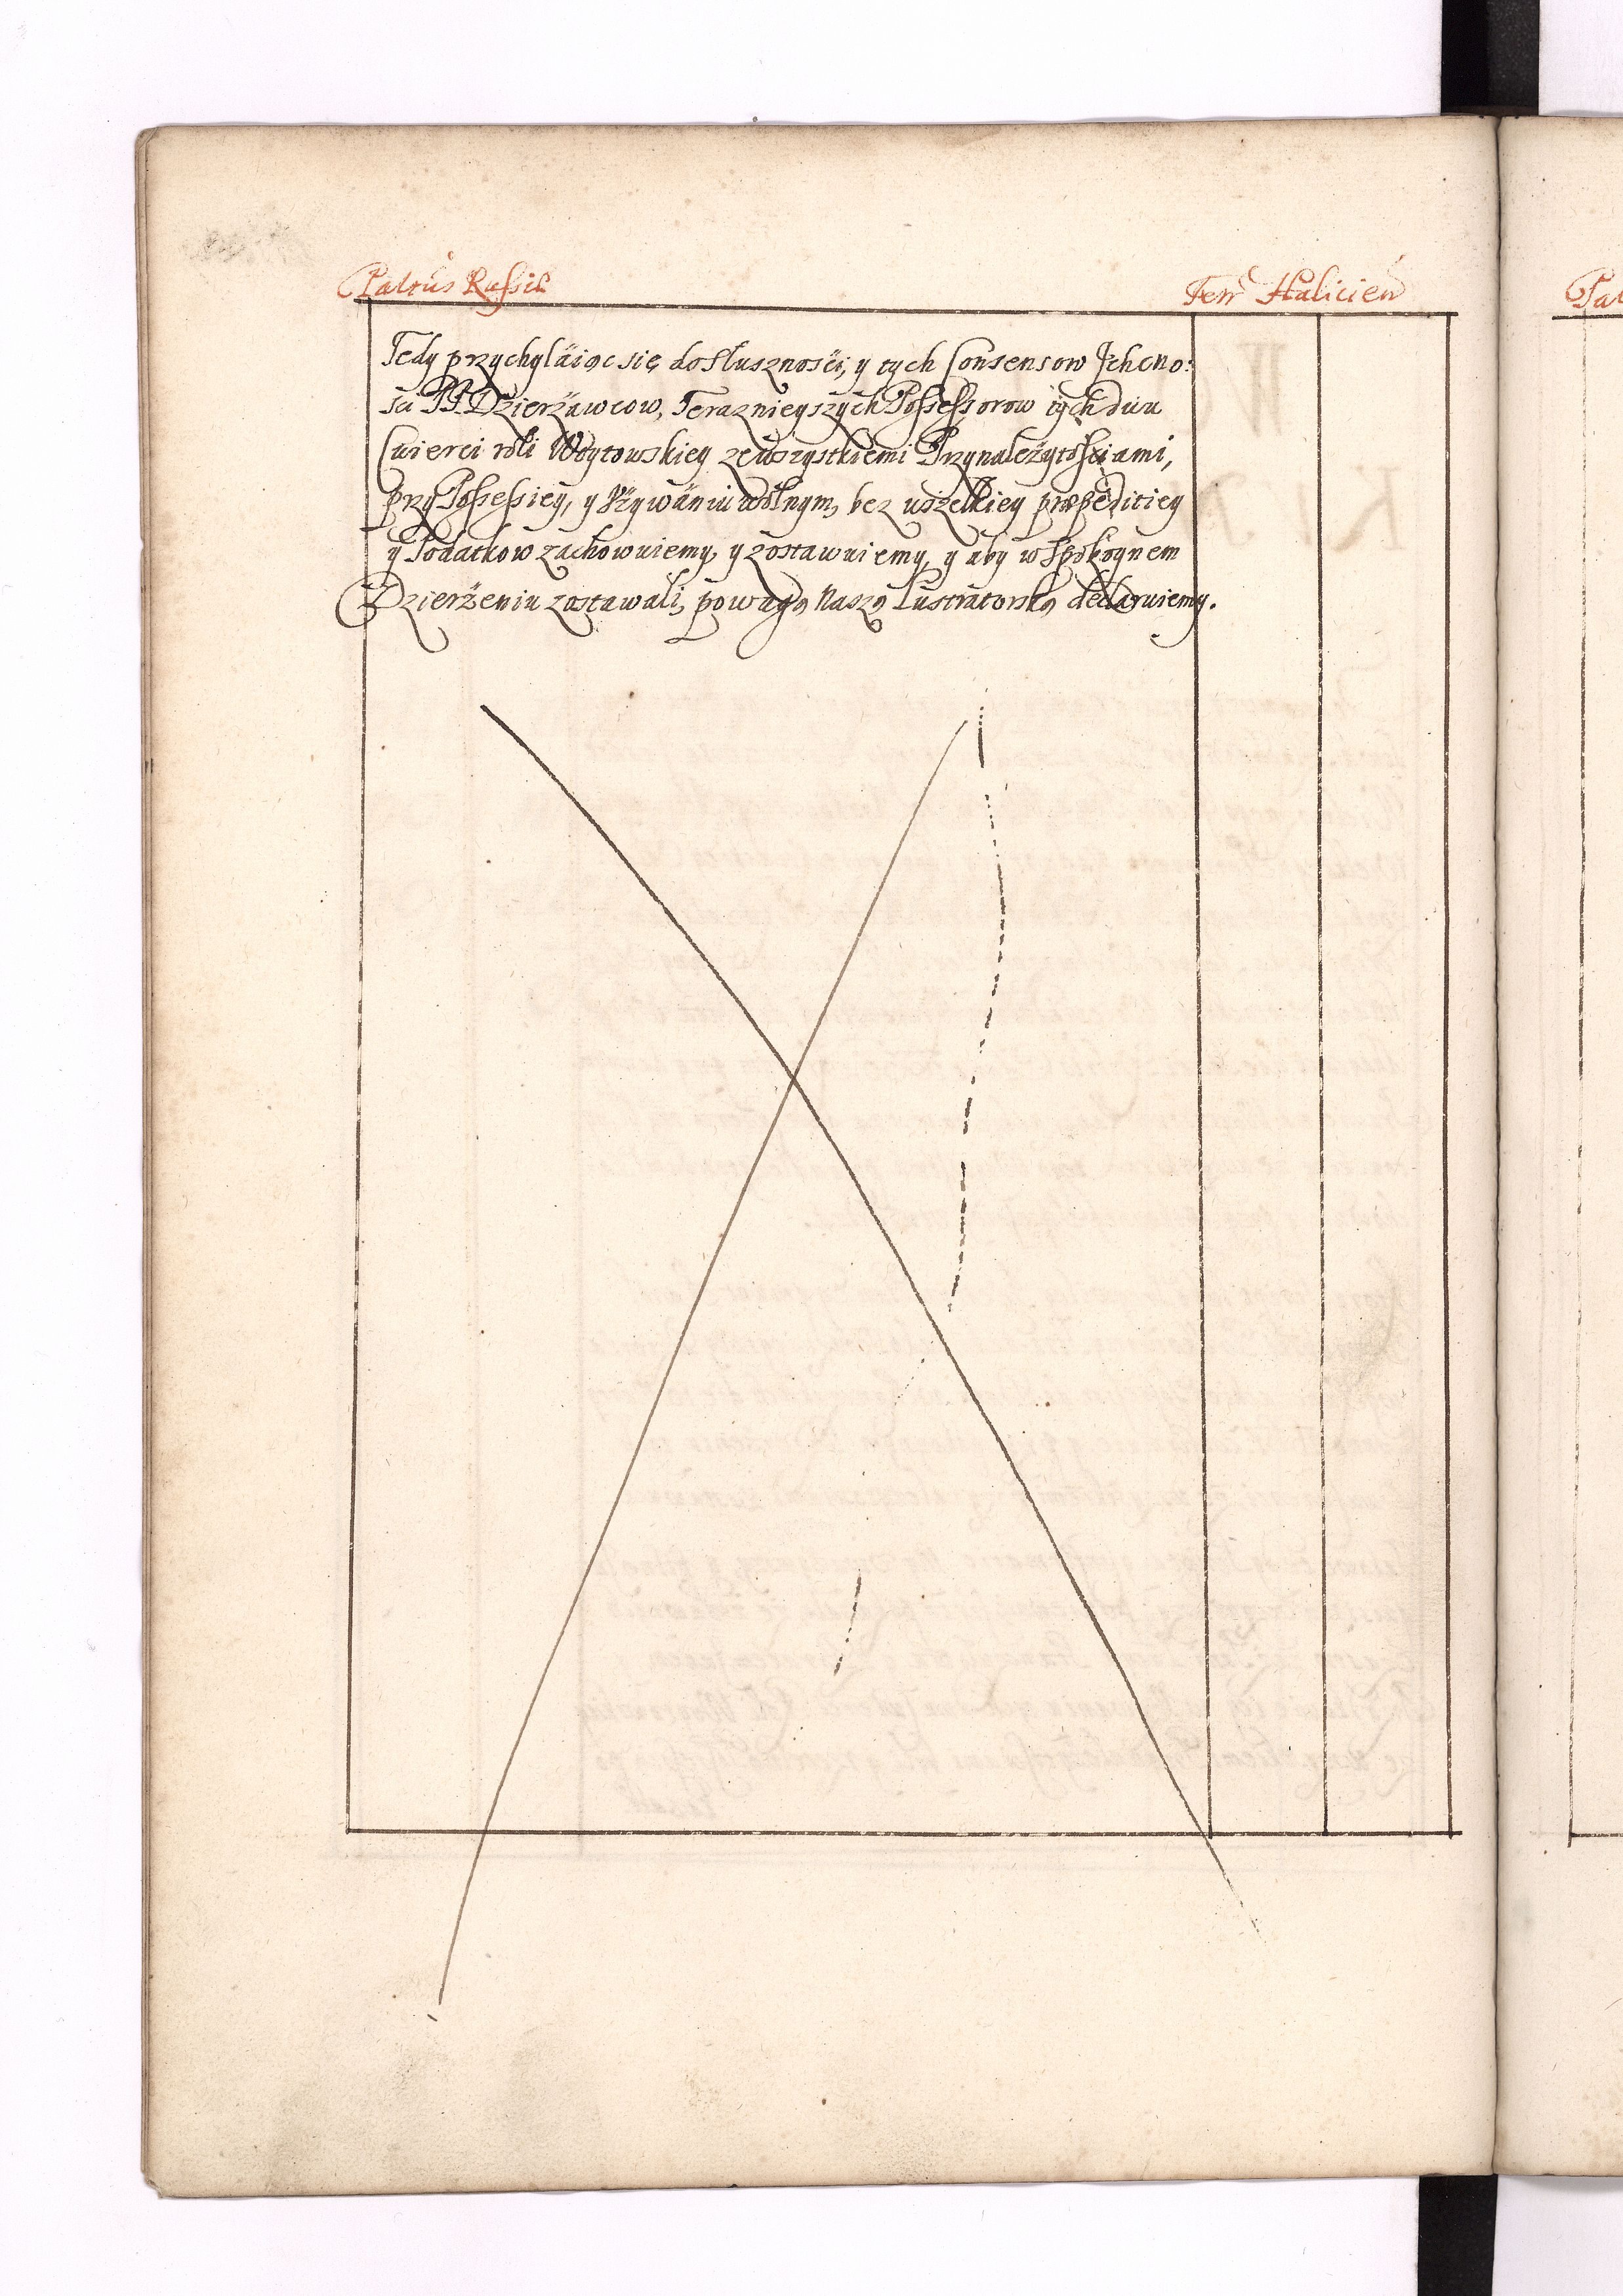 Palrus Russiæ Terr Halicien
Tedy przychyláiąc się do Słusznośći, y tych Consensow Jchmo:
sci PP. Dzierżawcow, Teraznieyszych Possessorow tych dwu
Cwierci roli Woytowskiey ze wszystkiemi Przynależytosciami,
przy Possessiey, y Używániu wolnym, bez wszelkiey præpeditiey
y Podatkow zachowuiemy, y zostawuiemy, y aby w Spokoynem
Dzierżeniu zostawali, powagą Naszą Lustratorską declaruiemy.